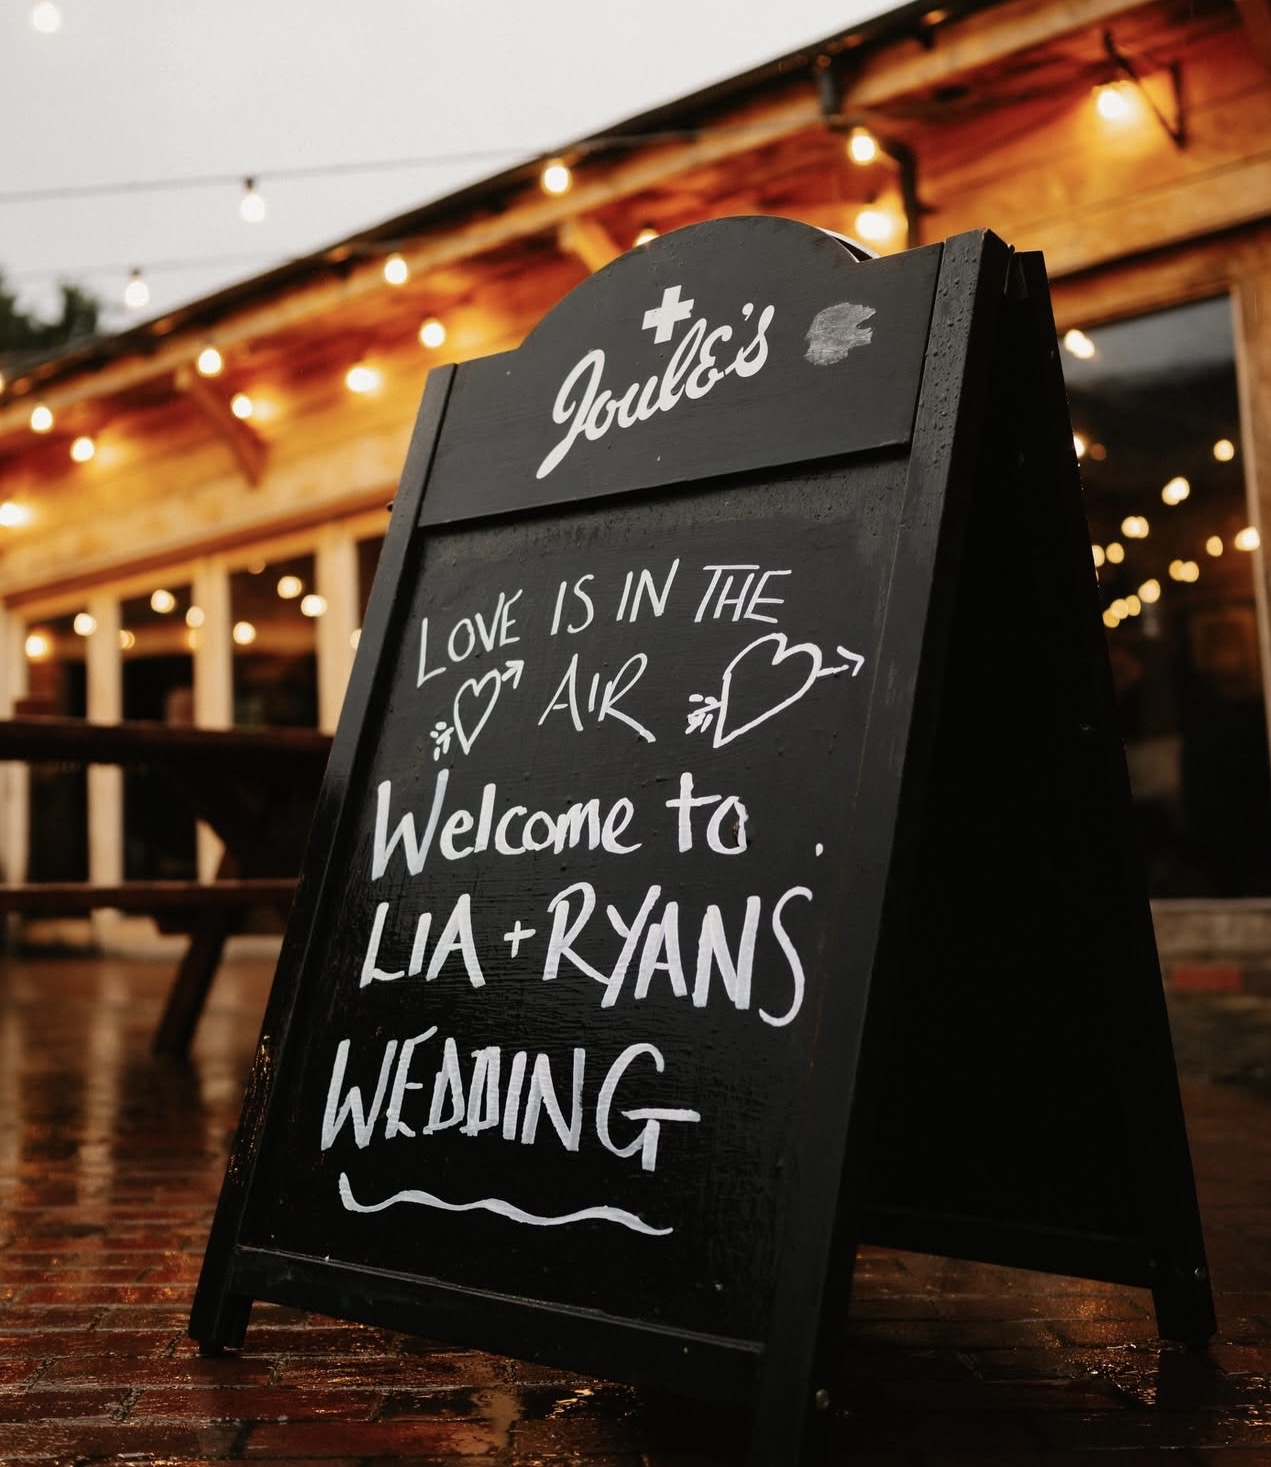 Joule's
LOVE IS IN THE
AIR
Welcome to
LIA + RYANS
WEDDING